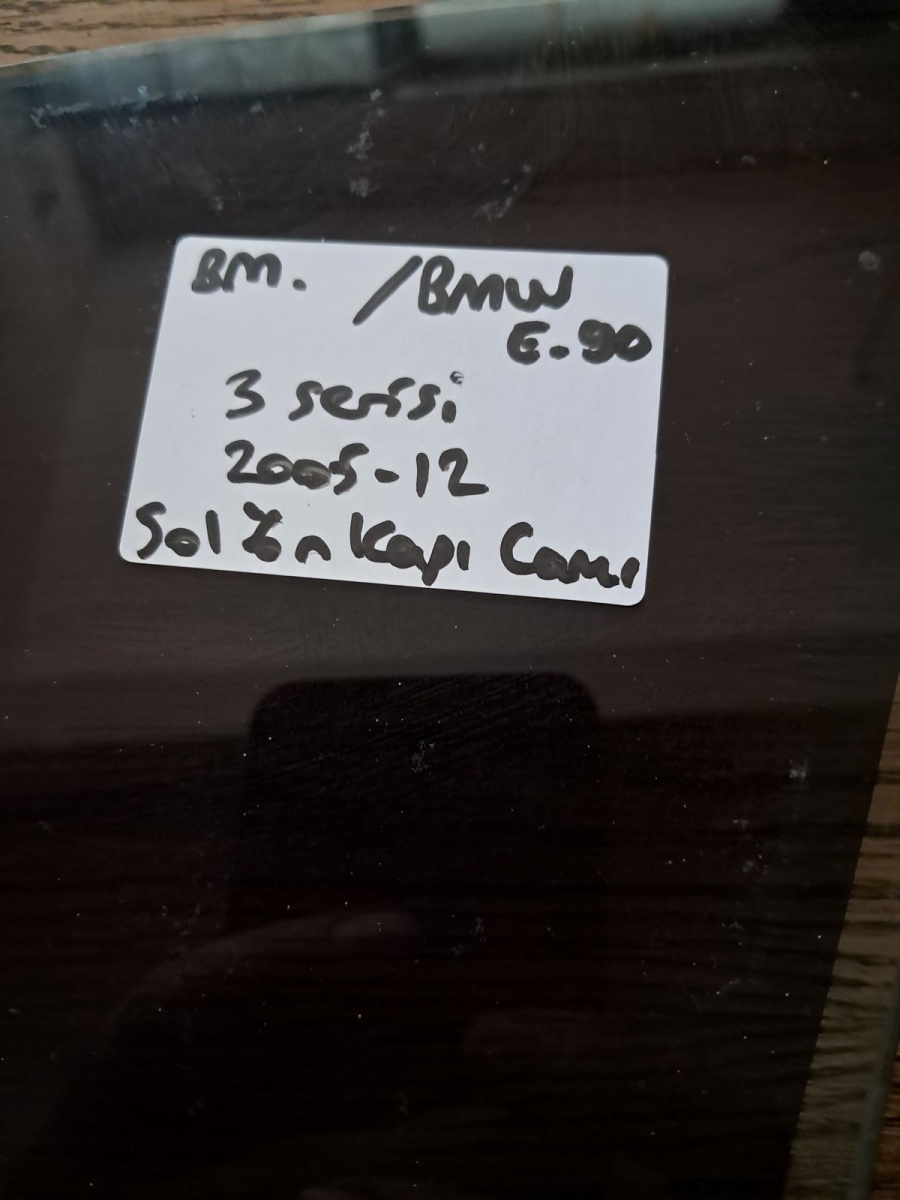 BM. /BMW
E.90
3 serisi
2005-12
Sol Ön Kapı Camı